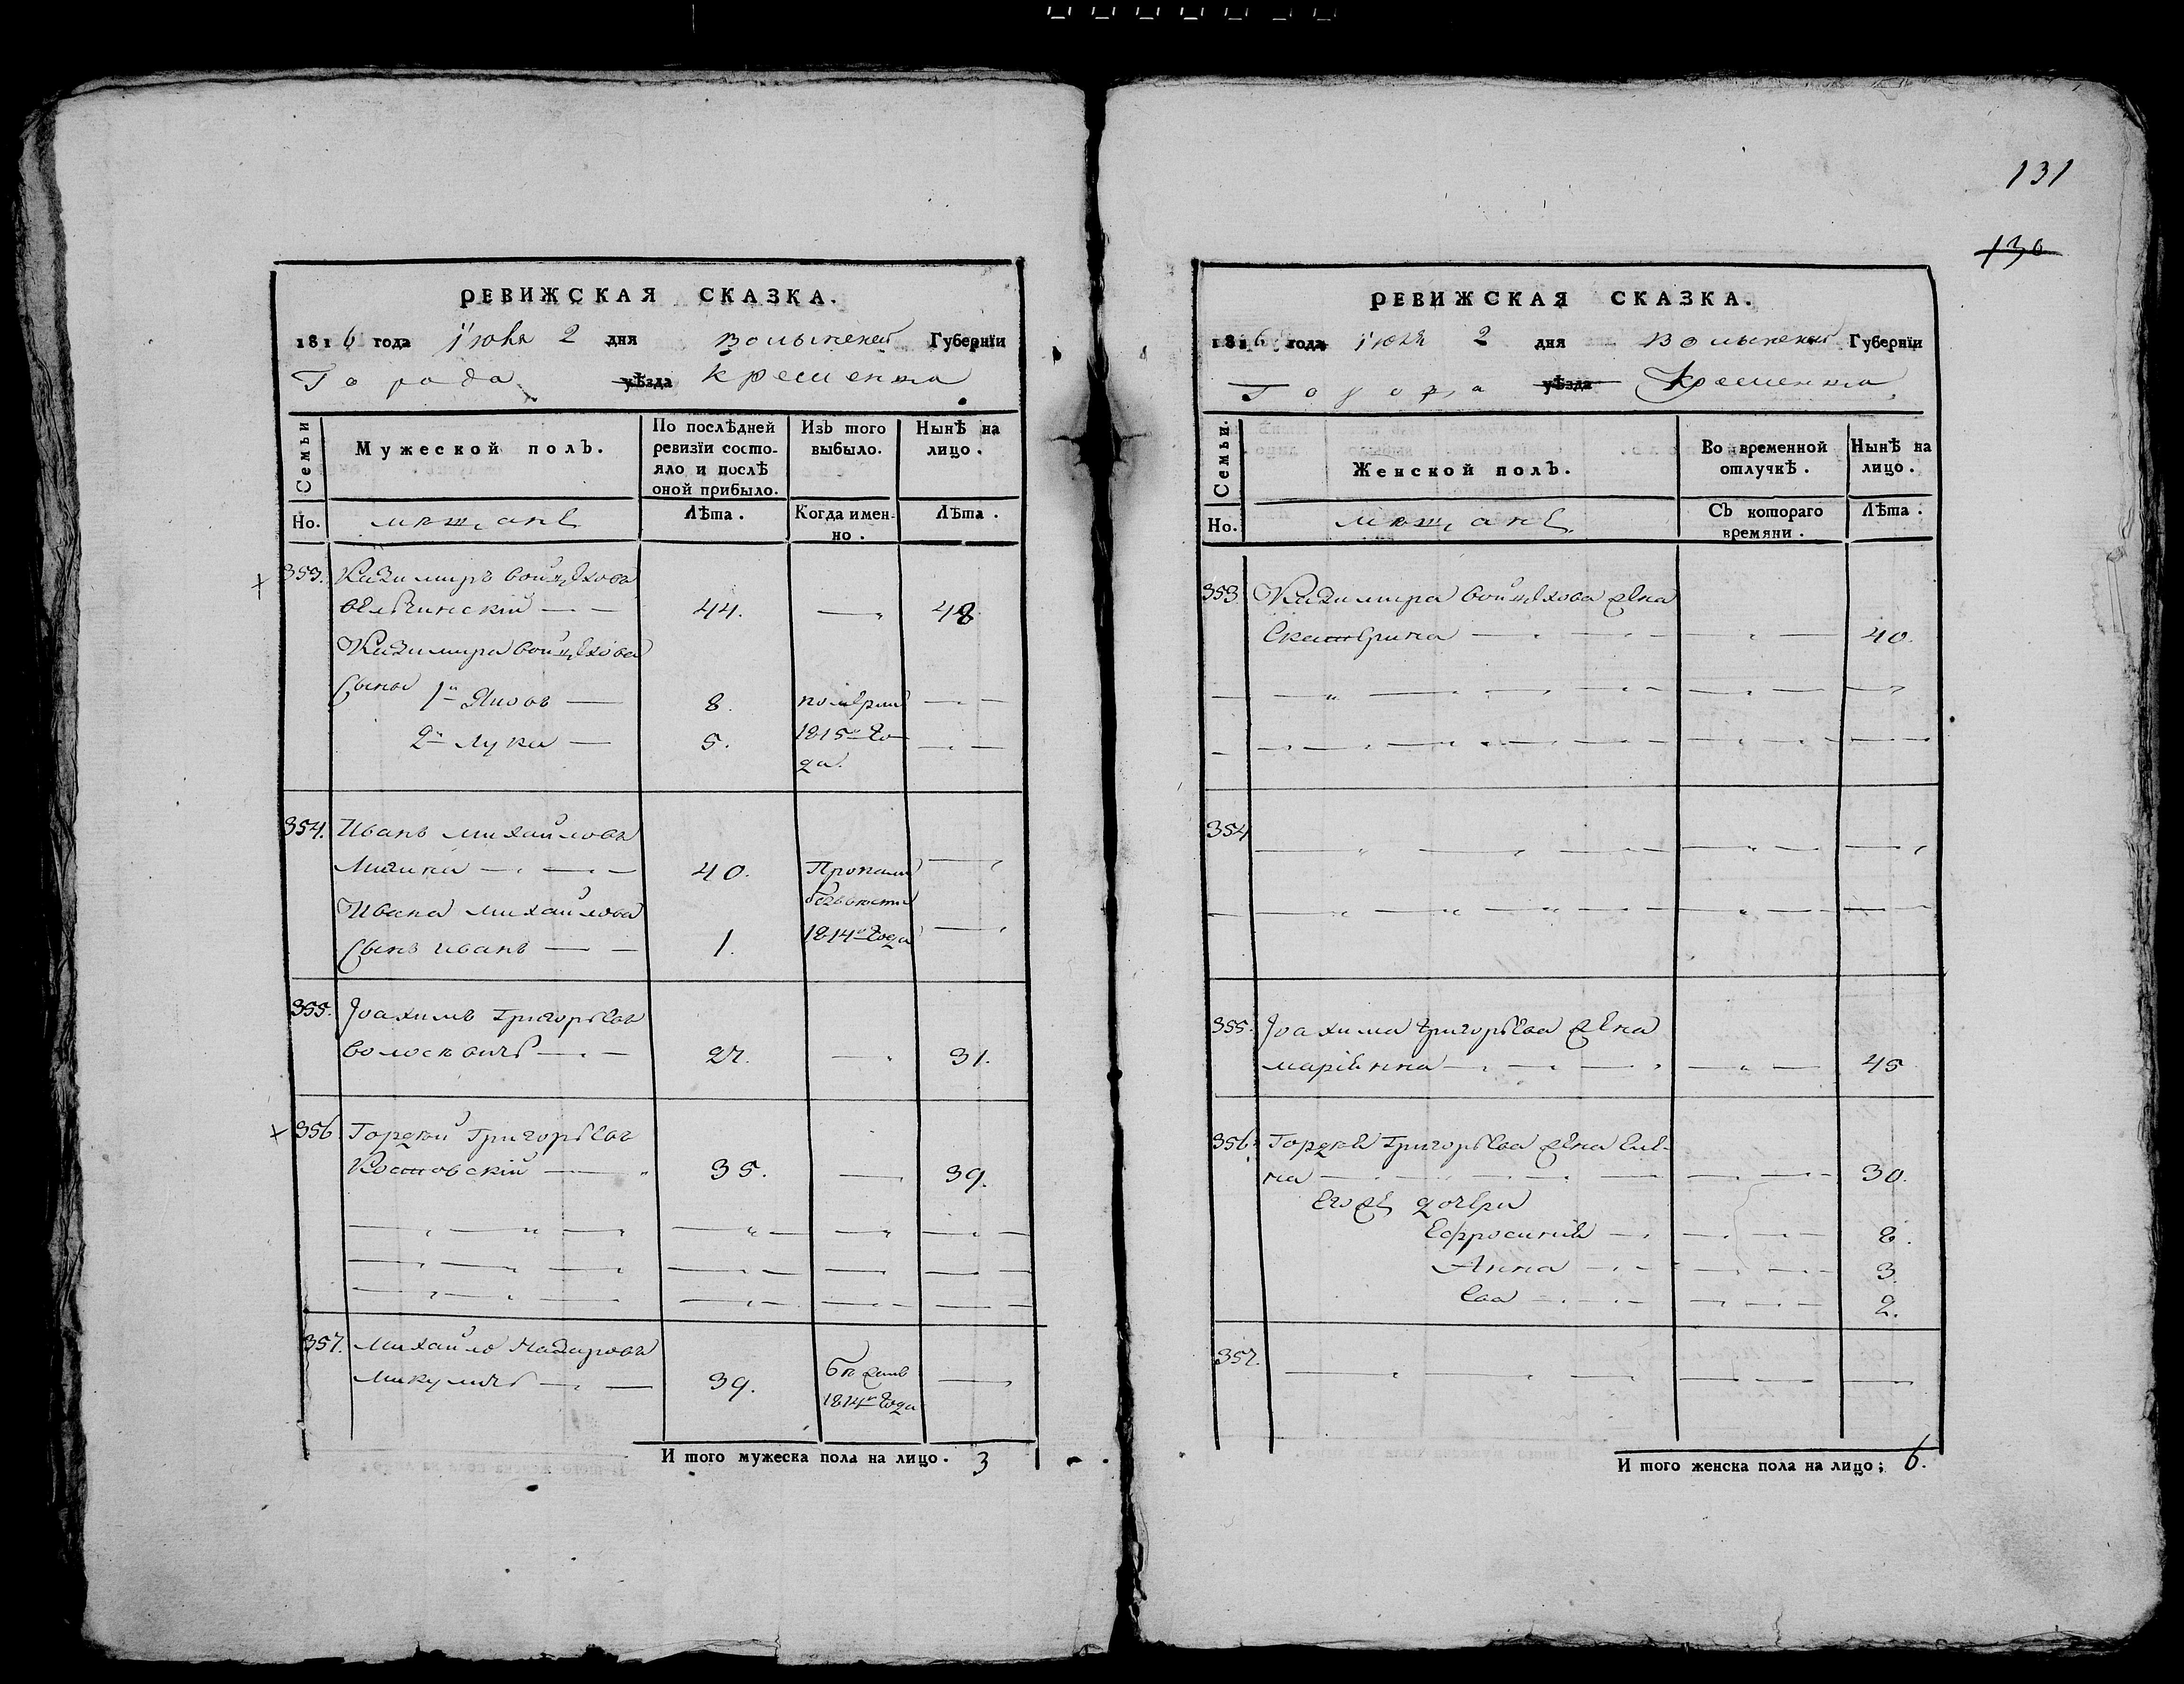 131
130
РЕВИЖСКАЯ СКАЗКА.
1816 года Іюля 2 дня Волынской Губернїи
Города уѣзда Кременца
Семьи
Мужеской полъ.
По послѣдней ревизїи состо-
яло и послѣ
оной прибыло.
Изъ того
выбыло.
Нынѣ на
лицо.
Но.
мѣщане
Лѣта.
Когда имен-
но.
Лѣта.
353. Казимиръ Войцеховъ
44. 48
Казимира Войцехова
Сыны 1й Яковъ 8. померли
2й Лука 5. 1815го го-
да.
354. Иванъ Михайловъ
40. Пропали
Ивана Михайлова безвѣсти
Сынъ Иванъ 1. 1814го года
355. Іоахимъ Григорьевъ
27. 31.
356 Гордѣй Григорьевъ
Костовскій 35. 39.
357. Михайло
Микуличъ 39. бѣжалъ
1814го года
И того мужеска пола на лицо. 3
РЕВИЖСКАЯ СКАЗКА.
1816 года Іюля 2 дня Волынской Губернїи
Города уѣзда Кременца
Семьи.
Женской полъ.
Во временной
отлучкѣ.
Нынѣ на
лицо.
Но.
мѣщане
Съ котораго
времяни.
Лѣта.
353 Казимира Войцехова жена
Екатерина 40.
354
355. Іоахима Григорьева жена
Маріанна 45
356. Гордѣя Григорьева жена Еле-
на 30.
Его же дочери
Ефросинія 8.
Анна 3.
Ева 2.
357.
И того женска пола на лицо; 6.